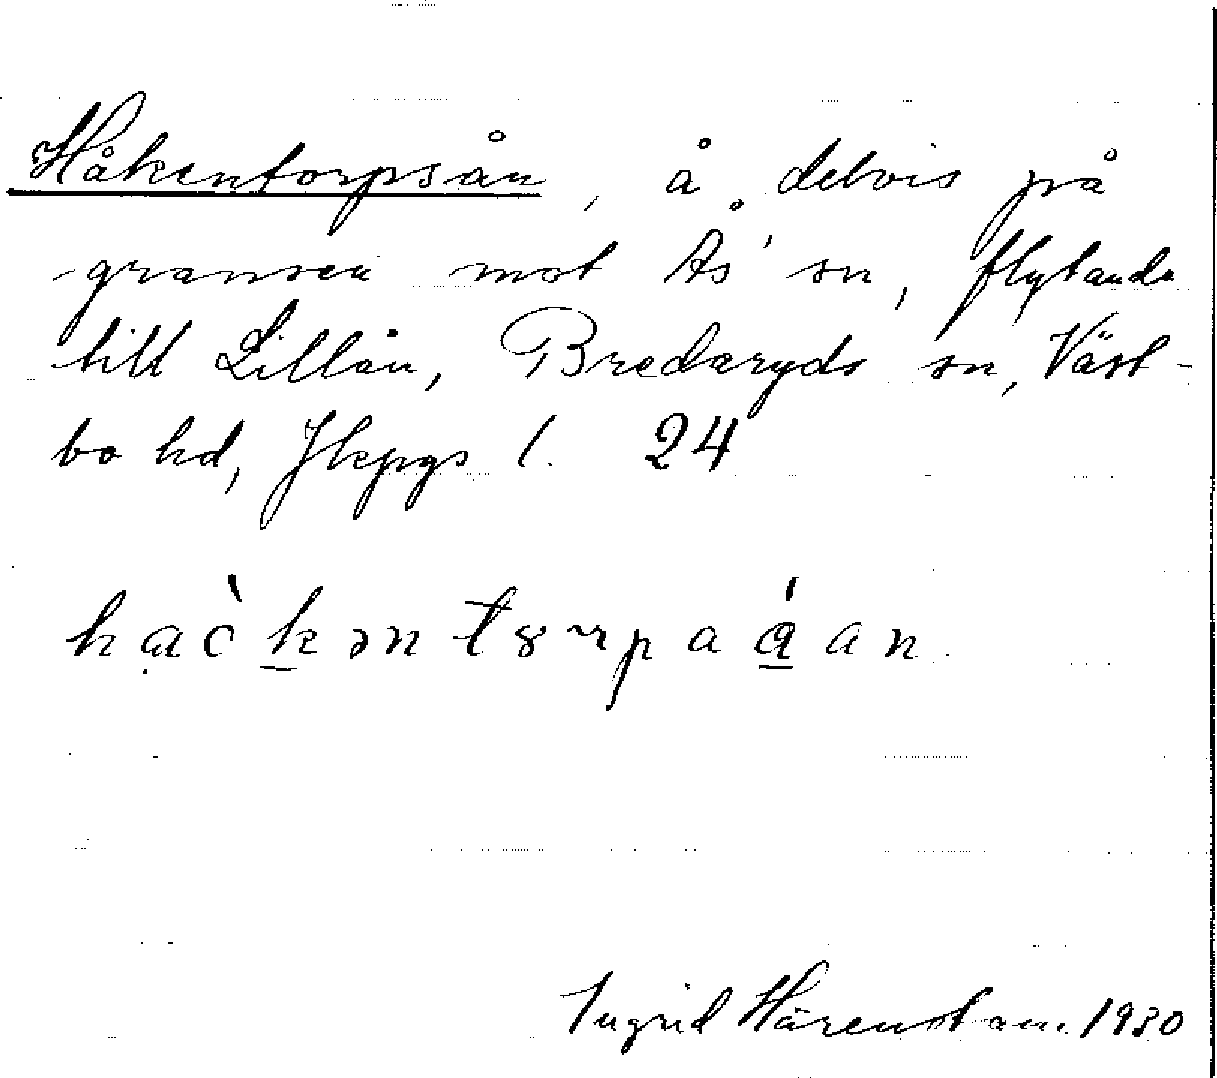 Håkentorpsån, å delvis på
gränsen mot Ås sn, flytande
till Lillån, Bredaryds sn, Väst-
bo hd, Jkpgs l. 24
Ingrid Härenstam 1930